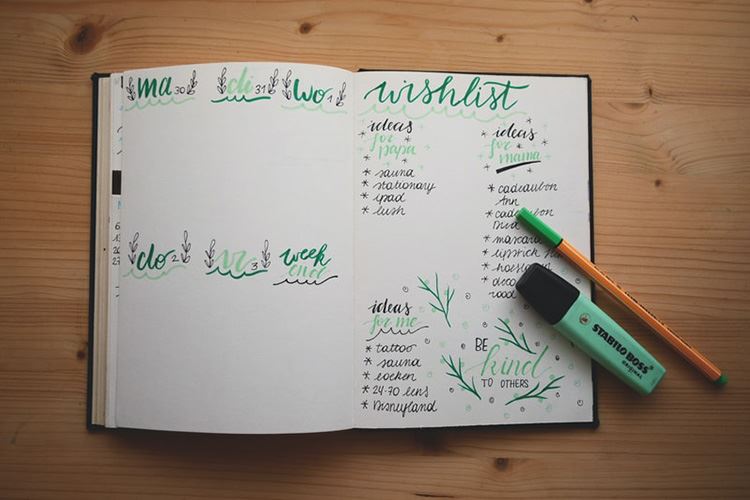 ma 30 di 31 wo 1
do 2 vr 3 week
end
wishlist
ideas
for
papa
* sauna
* stationary
* ipad
* lush
ideas
for
mama
* cadeaubon
Ann
*
* mascara
* lipstick
*
*
rood
ideas
for me
* tattoo
* sauna
* boeken
* 24-70 lens
* Disneyland
BE
kind
TO OTHERS
STABILO BOSS
ORIGINAL